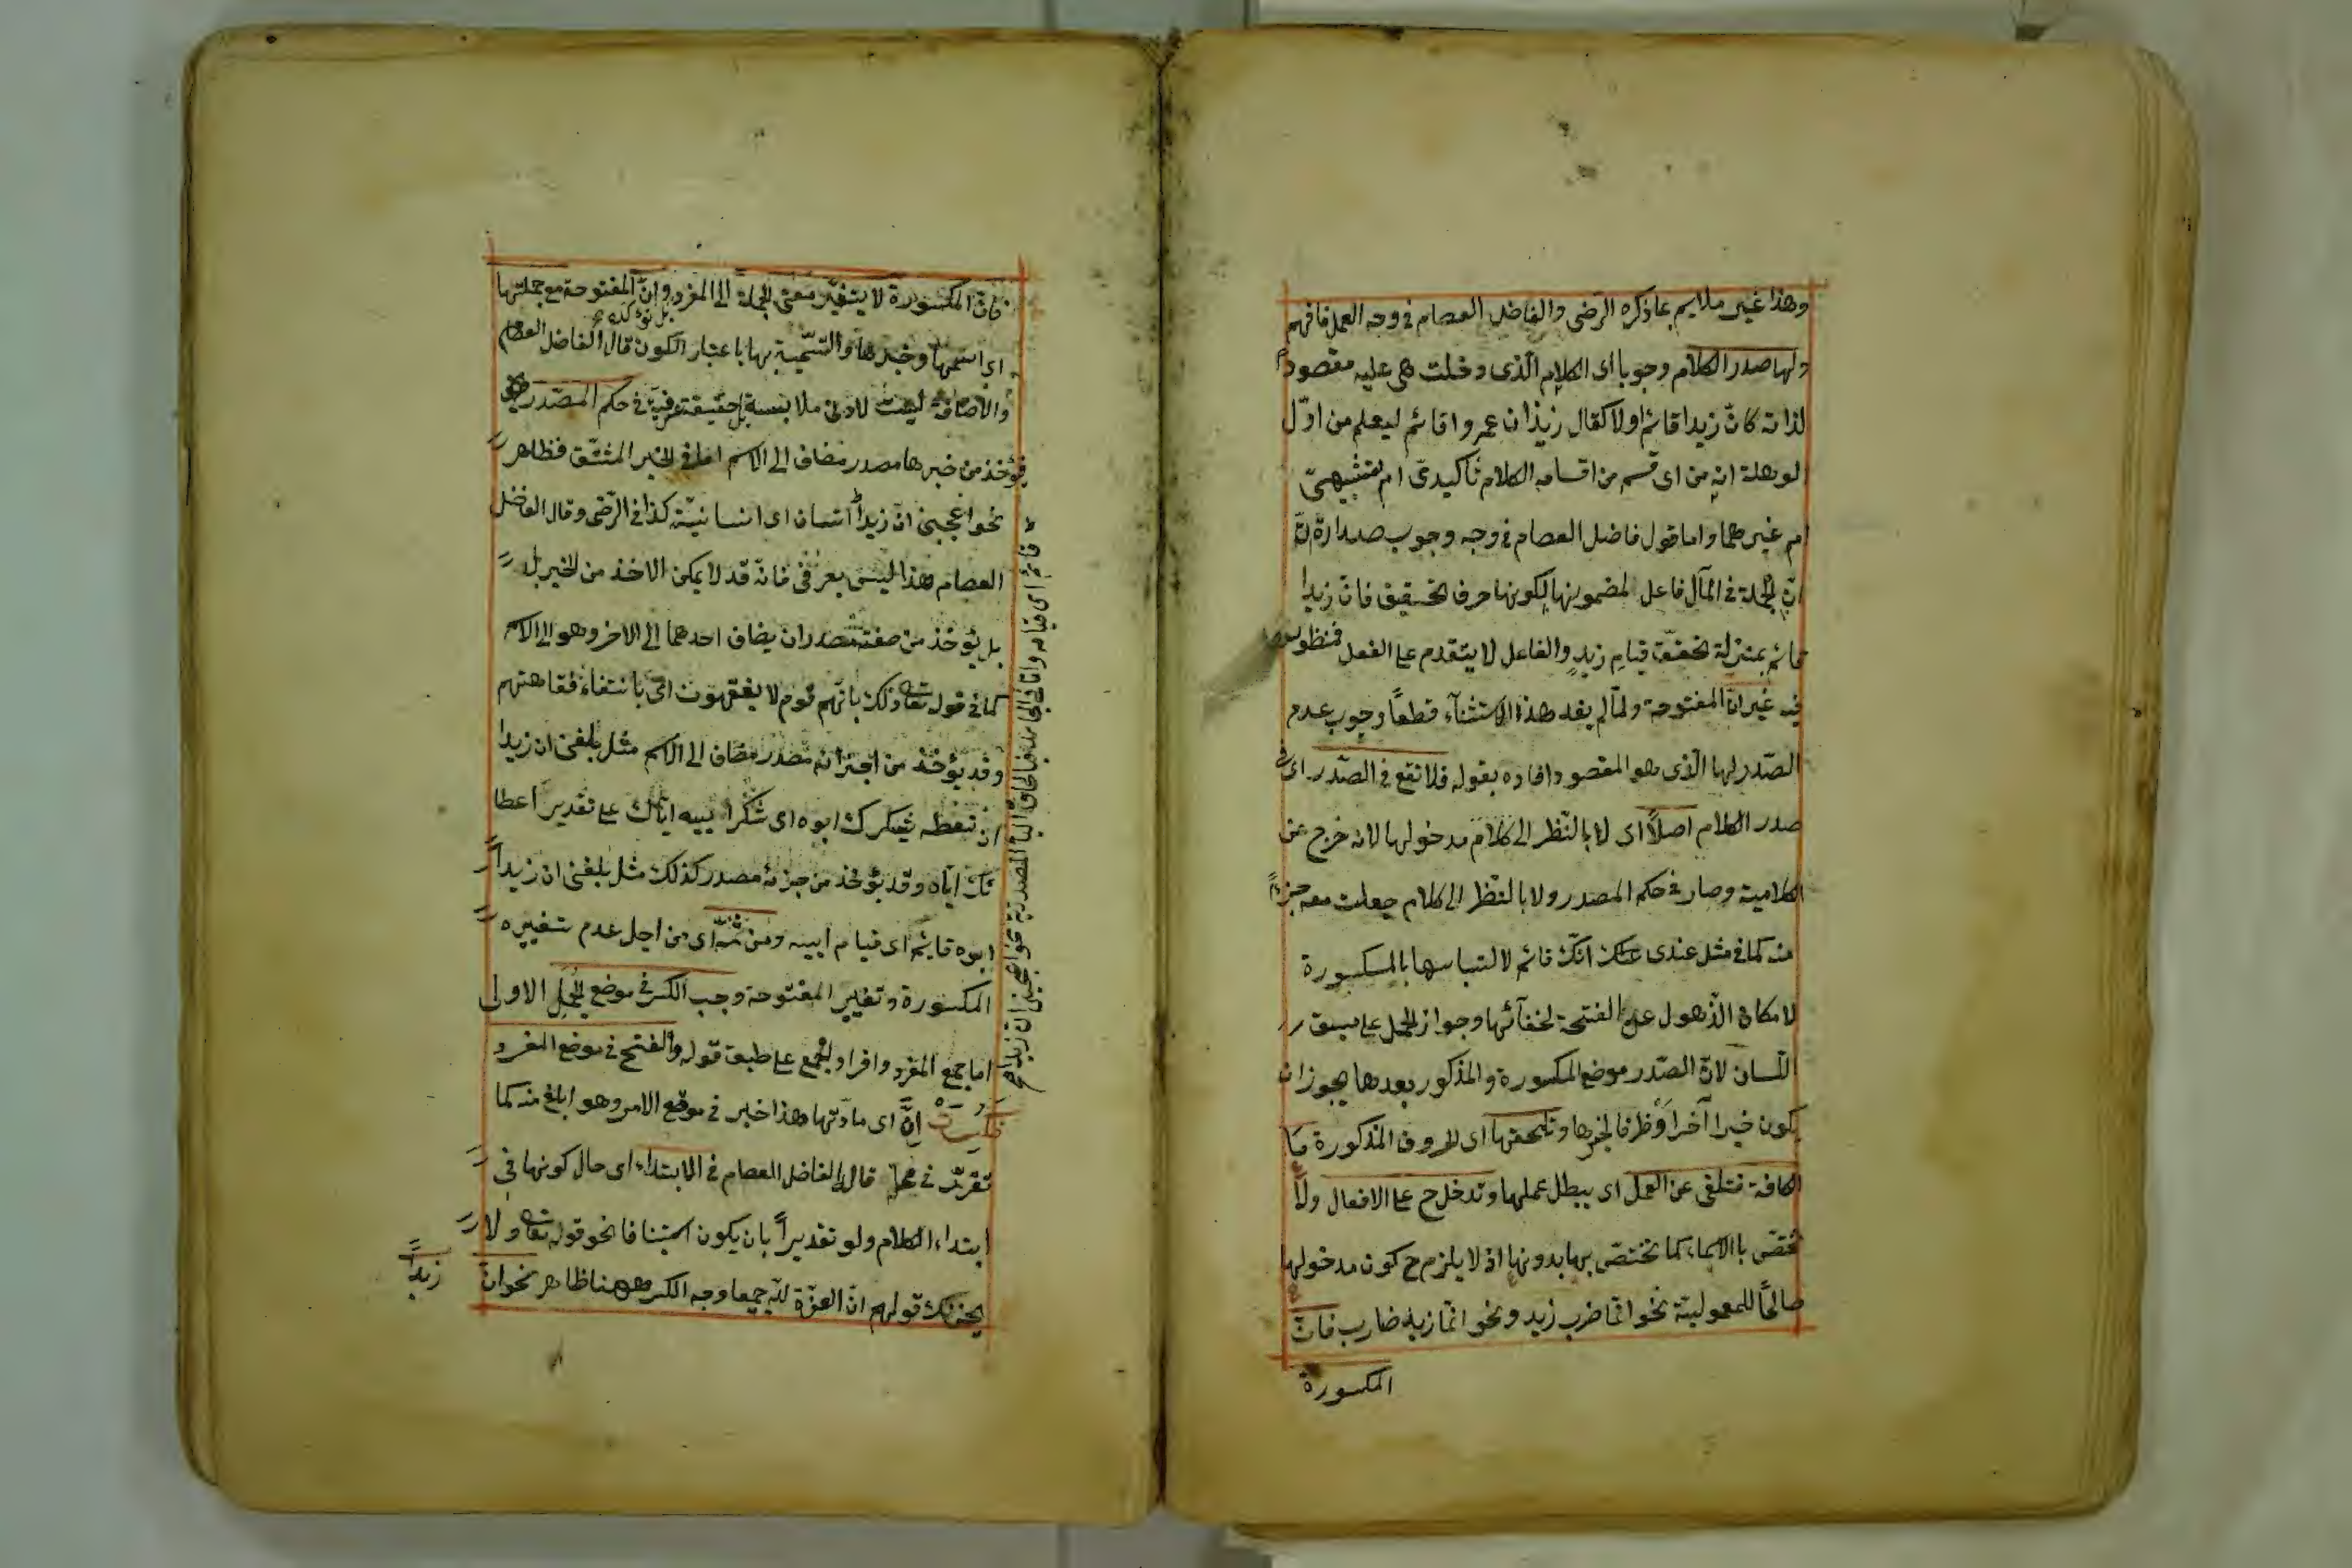 وهذا غير ملايم بما ذكره الرضى والفاضل العصام فى وجه العمل فافهم
ولها صدر الكلام وجوبا اى الكلام الّذى دخلت هى عليه مقصودا
لذاته كانّ زيدا قائم اولا كقال زيد ان عمروا قائم ليعلم من اوّل
الوهلة انه من اى قسم من اقسام الكلام تأكيدىّ ام تشبيهىّ
ام غيرهما واما قول فاضل العصام فى وجه وجوب صدارة انّ
انّ الجملة فى المآل فاعل لمضمونها لكونها حرف تحقيق فانّ زيدا
قائم بمنزلة تحقّق قيام زيدٍ والفاعل لا يتقدم على الفعل فمنظور
فيه غير انّ المفتوحة ولمّا لم يفد هذا الاستثنآء قطعاً وجوب عدم
الصّدر لها الّذى هو المقصود افاده بقوله فلا تقع فى الصّدر اى فى
صدر الكلام اصلاً اى لا بالنّظر الى كلام مدخولها لانه خرج عن
الكلامية وصار فى حكم المصدر ولا بالنّظر الى كلام جعلت معه جزءاً
منه كما فى مثل عندى انّك قائم لالتباسها بالمكسورة
لامكان الذّهول عن الفتحة لخفآئها وجواز الحمل على سبق
اللّسان لانّ الصّدر موضع المكسورة والمذكور بعدها يجوز ان
يكون خبرا آخرا وظرفا لخبرها وتلحقها اى الحروف المذكورة مَا
الكافة فتلغى عن العمل اى يبطل عملها وتدخل ح على الافعال ولا
تختصّ بالاسماء كما تختصّ بها بدونها اذ لا يلزم ح كون مدخولها
صالحًا للمعموليّة نحو انّما ضرب زيد ونحو انّما زيد ضارب فانّ
المكسورة
فانّ المكسورة لا يتغيّر معنى الجملة الى المفرد وانّ المفتوحة مع جملتها
بل تؤكده
اى اسمها وخبرها والتسمية بها باعتبار الكون قال الفاضل العصام
والاضافة ليست لادنى ملابسة بل حقيقة عرفيّة فى حكم المصدر
فيؤخذ من خبرها مصدر مضاف الى الاسم اما فى الخبر المشتّق فظاهر
نحو اعجبنى انّ زيداً انسان اى انسانيّته كذا فى الرّضى وقال الفاضل
العصام هذا ليس بعرفىّ فانّه قد لا يمكن الاخذ من الخبر بل
بل يؤخذ من صفته مصدر ان يضاف احدهما الى الاخر وهو الى الاسم
كما فى قوله تعا ذلك بانّهم قوم لا يفقهون اى بانتفاء فقاهتهم
وقد يؤخذ من اجزائه مصدر مضاف الى الاسم مثل بلغنى ان زيدا
ان تعطه يشكرك ابوه اى شكر ابيه ايّاك على تقدير اعطا
ئك ايّاه وقد يؤخذ من جزئه مصدر كذلك مثل بلغنى ان زيداً
ابوه قائم اى قيام ابيه ومن ثمّه اى من اجل عدم تغيير
المكسورة وتغيير المفتوحة وجب الكسر فى موضع الجمل الاولى
اما جمع المفرد وافراد الجمع على طبق قوله والفتح فى موضع المفرد
فكسرت انّ اى مادّتها هذا خبر فى موقع الامر وهو ابلغ منه كما
تقرّر فى محلّه قال الفاضل العصام فى الابتداء اى حال كونها فى
ابتداء الكلام ولو تقديراً بان يكون استينافا نحو قوله تعا ولا
يحزنك قولهم انّ العزّة للّه جميعا وجه الكسر ههنا ظاهر نحو انّ
زيداً